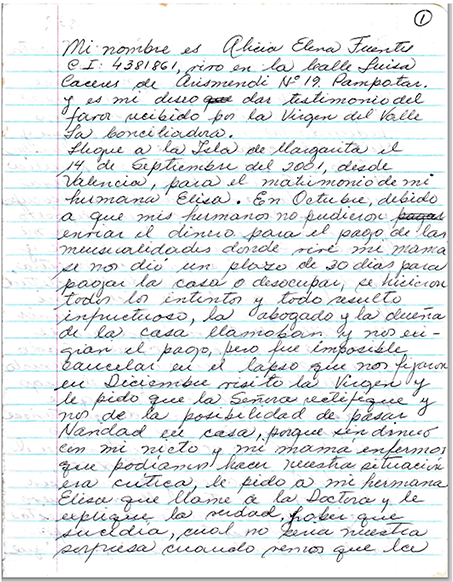 1
Mi nombre es Alicia Elena Fuentes
C.I: 4381861, vivo en la Calle Luisa
Caceres de Arismendi Nº 19. Pampatar.
y es mi deseo que dar testimonio del
favor recibido por la Virgen del Valle
La Conciliadora.
Llegue a la Isla de Margarita el
14 de Septiembre del 2001, desde
Valencia, para el matrimonio de mi
hermana Elisa. En Octubre, debido
a que mis hermanos no pudieron pagar
enviar el dinero para el pago de las
mensualidades donde vive mi mama
se nos dió un plazo de 30 dias para
pagar la casa o desocupar, se hicieron
todos los intentos y todo resulto
infructuoso, la abogado y la dueña
de la casa llamaban y nos exi-
gian el pago, pero fue imposible
cancelar en el lapso que nos fijaron
en Diciembre visito la Virgen y
le pido que la Señora rectifique y
nos de la posibilidad de pasar
Navidad en casa, porque sin dinero
con mi nieto y mi mama enfermos
que podiamos hacer nuestra situación
era critica, le pido a mi hermana
Elisa que llame a la Doctora y le
explique la verdad, haber que
sucedia, cual no seria nuestra
sorpresa cuando vemos que la